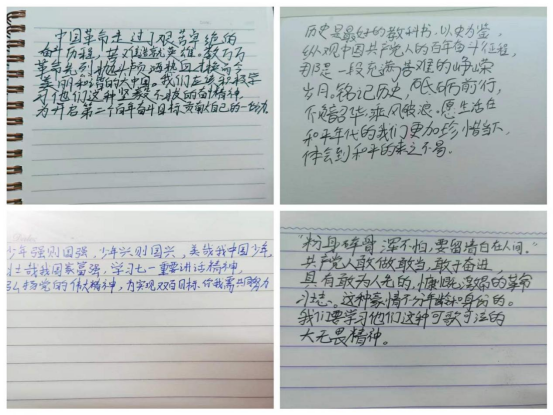 中国革命走过了艰苦卓绝的
奋斗历程,苦难造就英雄,数万万
革命先烈
美丽和谐的大中国,我们应该
习他们这种坚毅不拔的 精神,
为开启第二个百年奋斗目标贡献自己的一份力
历史是最好的教科书,以史为鉴,
纵观中国共产党人的百年奋斗征程,
那是一段充满苦难的峥嵘
岁月。铭记历史,砥砺前行,
不负韶华,乘风破浪。愿生活在
和平年代的我们更加珍惜当下,
体会到和平的来之不易。
少年强则国强,少年兴则国兴,美哉我中国少年
壮哉我国家富强,学习七一重要讲话精神,
弘扬党的伟大精神,为实现双百目标
“粉身碎骨浑不怕,要留清白在人间。”
共产党人敢做敢当,敢于奋进,
具有敢为人先的,慷慨激昂的革命
斗志、这种豪情不分年龄和身份的。
我们要学习他们这种可歌可泣的
大无畏精神。